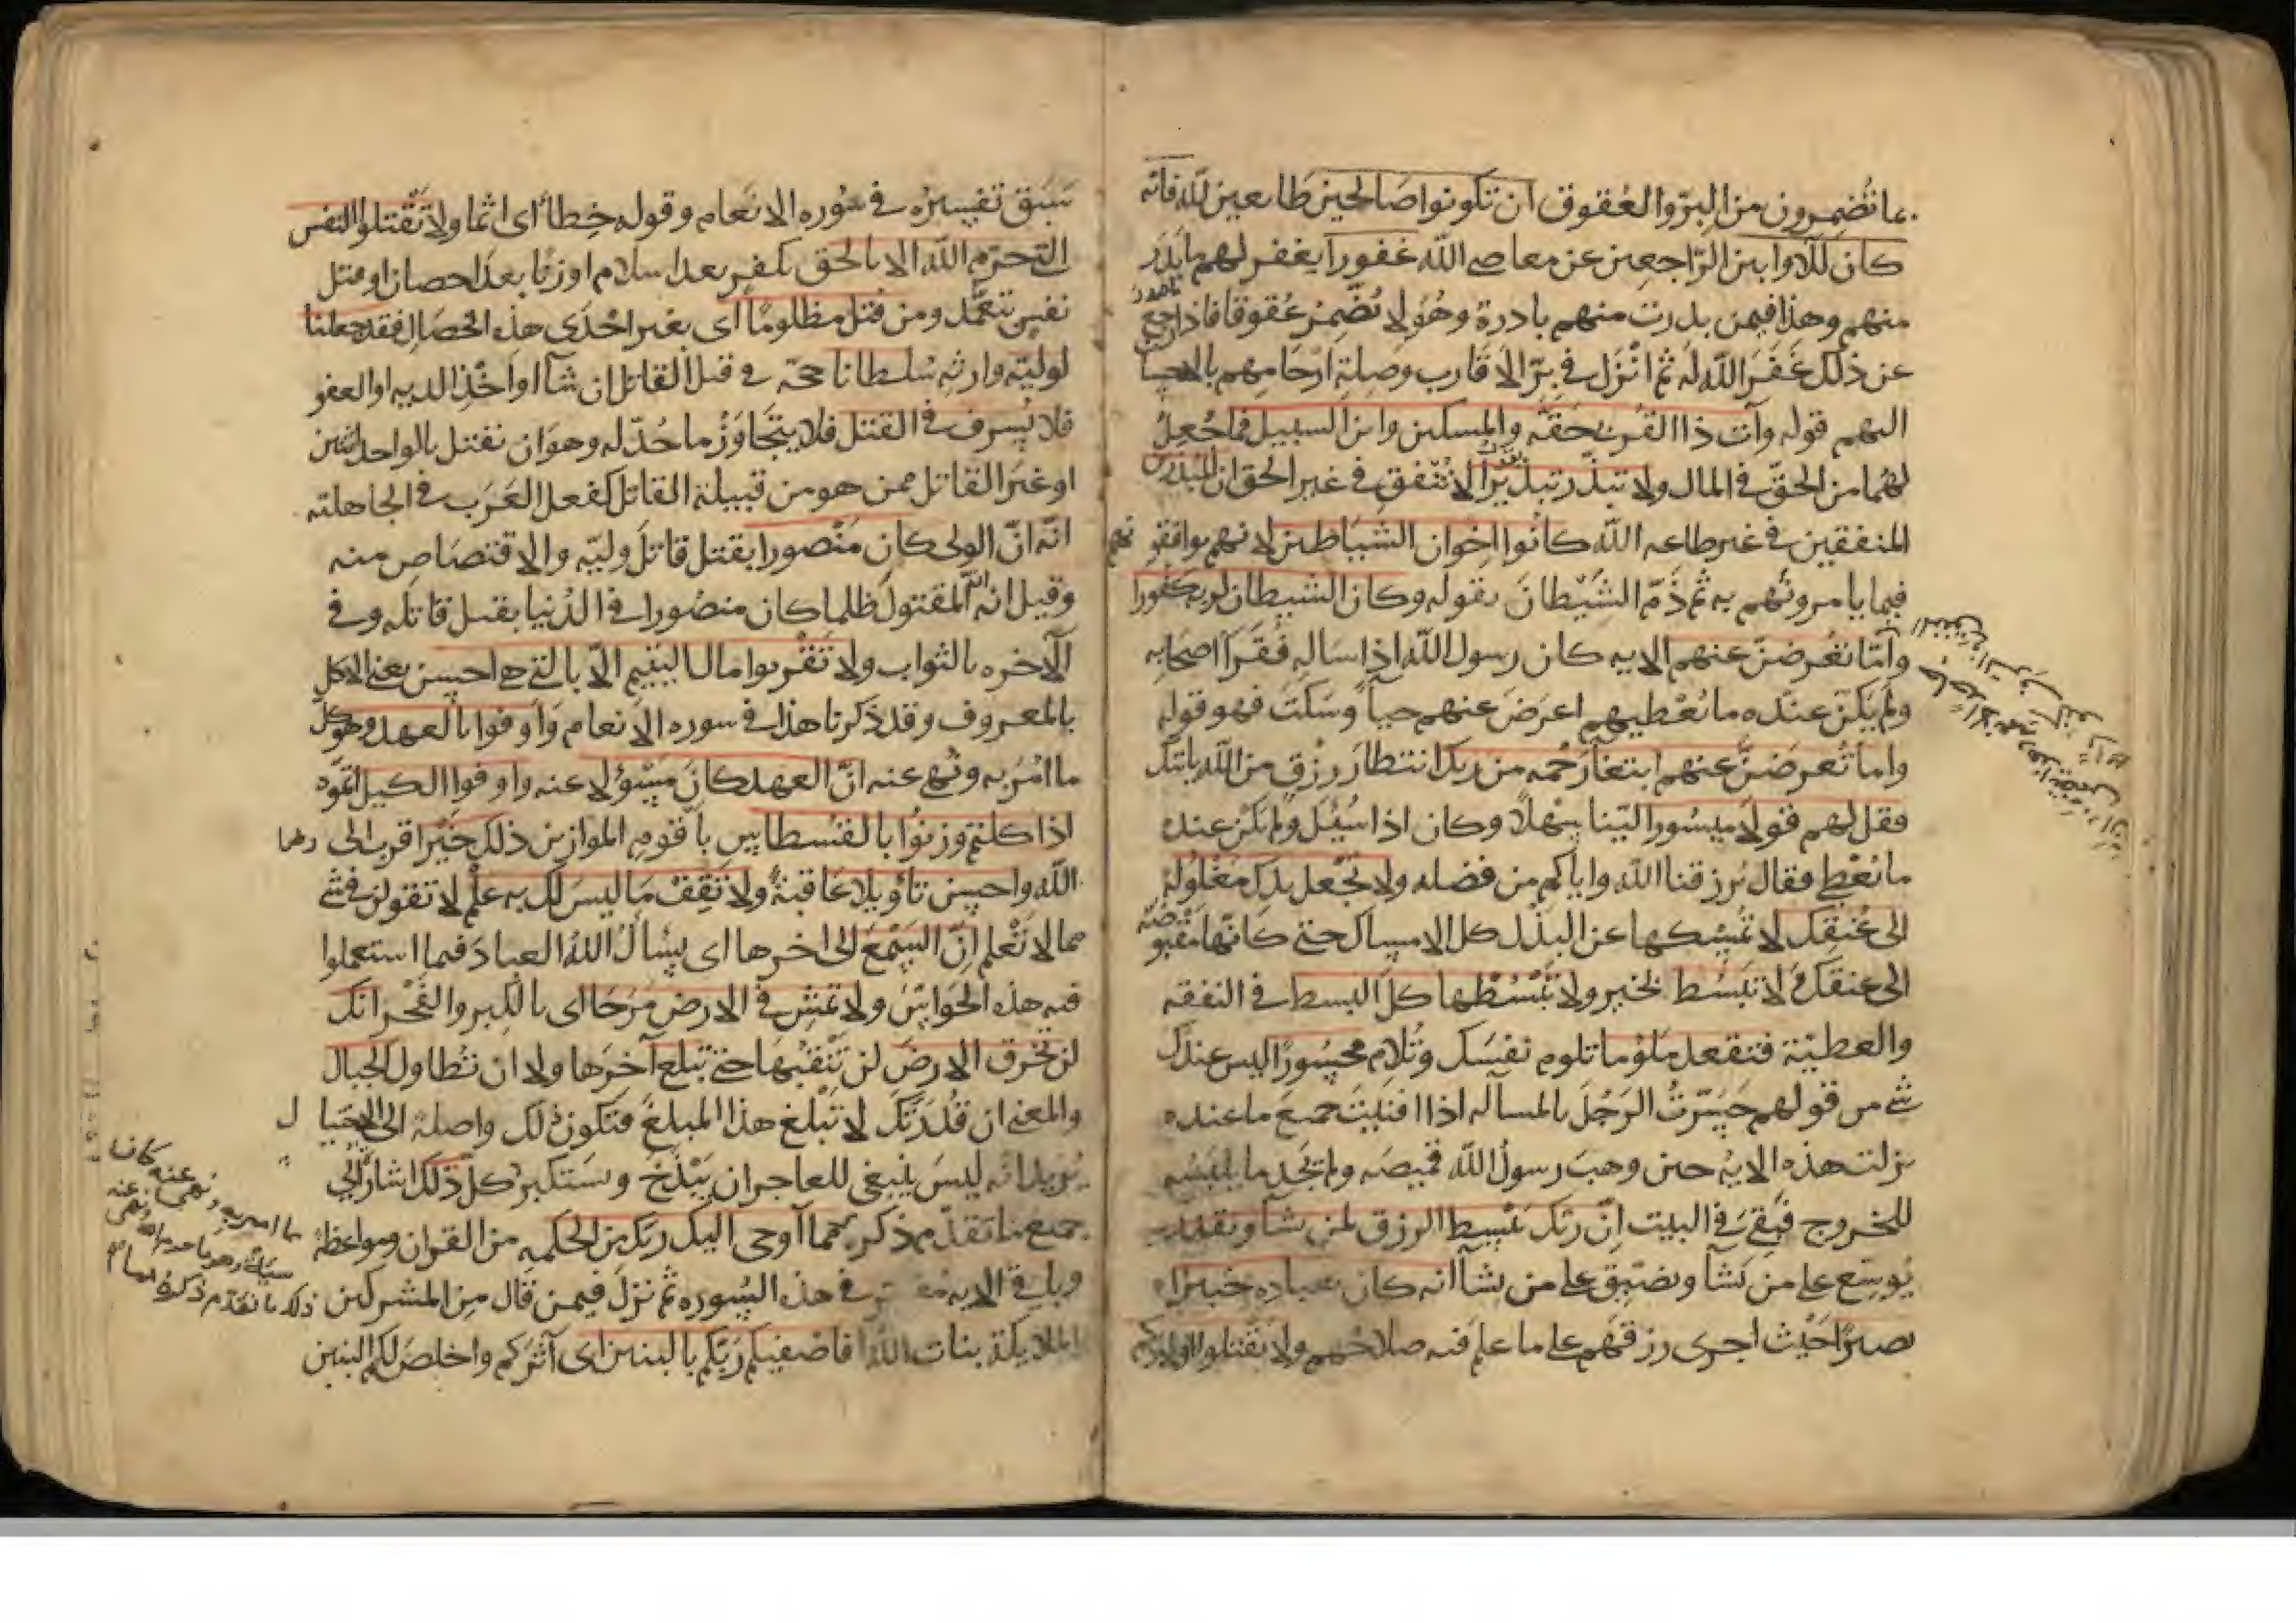 بما تضمرون من البر والعقوق ان تكونوا صالحين طايعين لله فانه
كان للاوابين الراجعين عن معاصي الله غفورا يغفر لهم ما بدر
منهم وهذا فيمن بدرت منهم بادرة وهو لا يضمر عقوقا فاذا رجع
عن ذلك غفر الله له ثم انزل في بر الاقارب وصلة ارحامهم بالاحسا
اليهم قوله وآت ذا القربى حقه والمسكين وابن السبيل فما جعل
لهما من الحق في المال ولا تبذر تبذيرا لا تنفق في غير الحق ان المبذرين
المنفقين في غير طاعه الله كانوا اخوان الشياطين لانهم يوافقو نهم
فيما يامرونهم به ثم ذم الشيطان بقوله وكان الشيطان لربه كفورا
واما تعرضن عنهم الايه كان رسول الله اذا ساله فقرآ اصحابه
ولم يكن عنده ما يعطيهم اعرض عنهم حيآ وسكت فهو قوله
واما تعرضن عنهم ابتغا رحمه من ربك انتظار رزق من الله ياتيك
فقل لهم قولا ميسورا لينا سهلا وكان اذا سئل ولم يكن عنده
ما يعطي فقال يرزقنا الله واياكم من فضله ولا تجعل يدك مغلولة
الى عنقك لا تمسكها عن البذل كل الامساك حتى كانها مقبوضة
الى عنقك لا تبسط لخير ولا تبسطها كل البسط في النفقه
والعطية فتقعد ملوما تلوم نفسك وتلام محسورا ليس عندك
شي من قولهم حسرت الرجل بالمساله اذا افنيت جميع ما عنده
نزلت هذه الايه حين وهب رسول الله قميصه ولم يجد ما يلبسه
للخروج فبقي في البيت ان ربك يبسط الرزق لمن يشآ ويقدر
يوسع على من يشآ ويضيق على من يشآ انه كان بعباده خبيرا
بصيرا حيث اجرى رزقهم على ما علم فيه صلاحهم ولا تقتلوا اولادكم
سبق تفسيره في سوره الانعام وقوله خطأ اى اثما ولا تقتلوا النفس
التي حرم الله الا بالحق بكفر بعد اسلام او زنا بعد احصان او قتل
نفس بتعمد ومن قتل مظلوما اى بغير احدى هذه الخصال فقد جعلنا
لوليه وارثه سلطانا حجة في قتل القاتل ان شآ او اخذ الديه او العفو
فلا يسرف في القتل فلا يتجاوز ما حد له وهو ان يقتل بالواحد اثنين
او غير القاتل ممن هو من قبيلة القاتل كفعل العرب في الجاهلية
انه ان الولي كان منصورا بقتل قاتل وليه والاقتصاص منه
وقيل انه المقتول ظلما كان منصورا في الدنيا بقتل قاتله وفي
الآخره بالثواب ولا تقربوا مال اليتيم الا بالتي هي احسن يعني الاكل
بالمعروف وقد ذكرنا هذا في سوره الانعام واوفوا بالعهد وهو كل
ما امر به ونهي عنه ان العهد كان مسؤلا عنه واوفوا الكيل اتموه
اذا كلتم وزنوا بالقسطاس باقوم الموازين ذلك خير اقرب الى رضا
الله واحسن تأويلا عاقبة ولا تقف ما ليس لك به علم لا تقولن في شي
مما لا تعلم ان السمع الى اخرها اى يسأل الله العباد فيما استعملوا
فيه هذه الحواس ولا تمش في الارض مرحا اى بالكبر والفخر انك
لن تخرق الارض لن تثقبها حتى تبلغ آخرها ولا ان تطاول الجبال
والمعنى ان قدرتك لا تبلغ هذا المبلغ فتكون لك واصلة الى الجبا ل
يريد انه ليس ينبغي للعاجر ان يبذخ ويستكبر كل ذلك اشار الى
جميع ما تقدم ذكره مما اوحى اليك ربك من الحكمه من القران ومواعظه
وباقي الايه في هذه السوره ثم نزل فيمن قال من المشركين
الملايكة بنات الله افاصفيكم ربكم بالبنين اى آثركم واخلص لكم البنين
كان
مما امر به ونهى عنه
ذلك ما تقدم ذكره